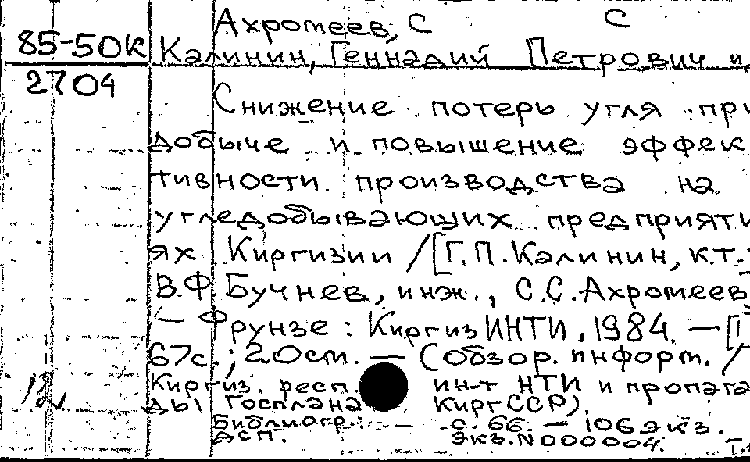 Ахромеев, С С
85-50к Калинин, Геннадий Петрович и
2704
Снижение потерь угля при
добыче и повышение эффек
тивности производства на
угледобывающих предприяти
ях Киргизии / [Г.П. Калинин, к.т.
В.Ф. Бучнев, инж., С.С. Ахромеев
— Фрунзе : КиргизИНТИ, 1984. — [
67с.; 20см. — (Обзор. информ. /
12 Киргиз. респ. ин-т НТИ и пропага
ды Госплана КиргССР).
Библиогр.: с. 66. — 106 экз.
Дсп. Экз. N 000004.